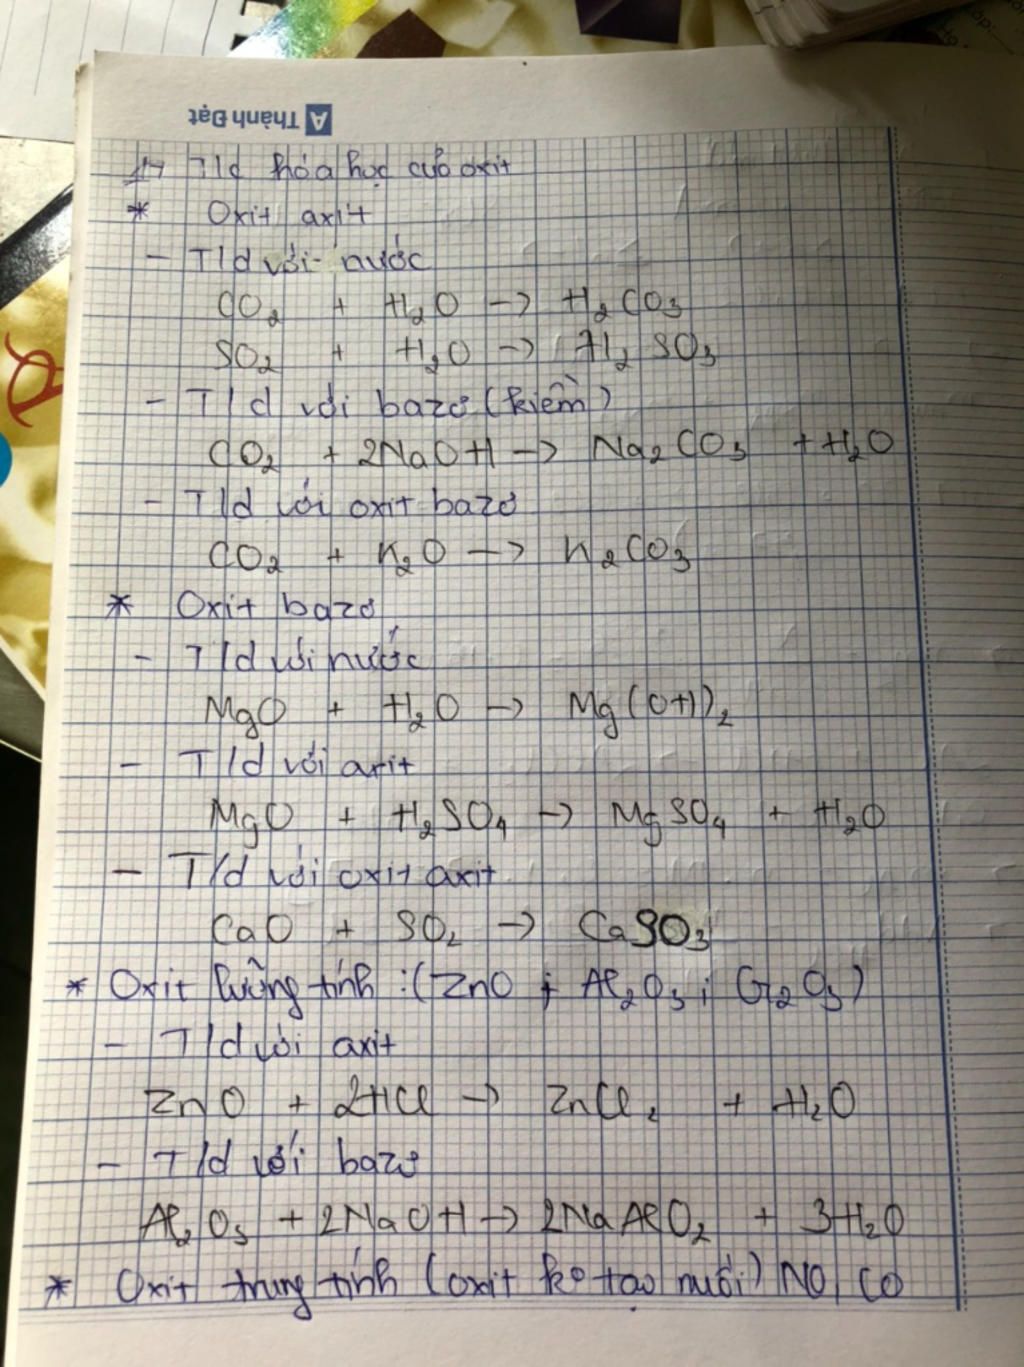 Thành Đạt
1, T/d hóa học của oxit
* Oxit axit
- T/d với nước
CO₂ + H₂O → H₂CO₃
SO₂ + H₂O → H₂SO₃
- T/d với bazơ (kiềm)
CO₂ + 2NaOH → Na₂CO₃ + H₂O
- T/d với oxit bazơ
CO₂ + K₂O → K₂CO₃
* Oxit bazơ
- T/d với nước
MgO + H₂O → Mg(OH)₂
- T/d với axit
MgO + H₂SO₄ → MgSO₄ + H₂O
- T/d với oxit axit
CaO + SO₂ → CaSO₃
* Oxit lưỡng tính : (ZnO ; Al₂O₃ ; Cr₂O₃)
- T/d với axit
ZnO + 2HCl → ZnCl₂ + H₂O
- T/d với bazơ
Al₂O₃ + 2NaOH → 2NaAlO₂ + 3H₂O
* Oxit trung tính (oxit ko tạo muối) NO, CO